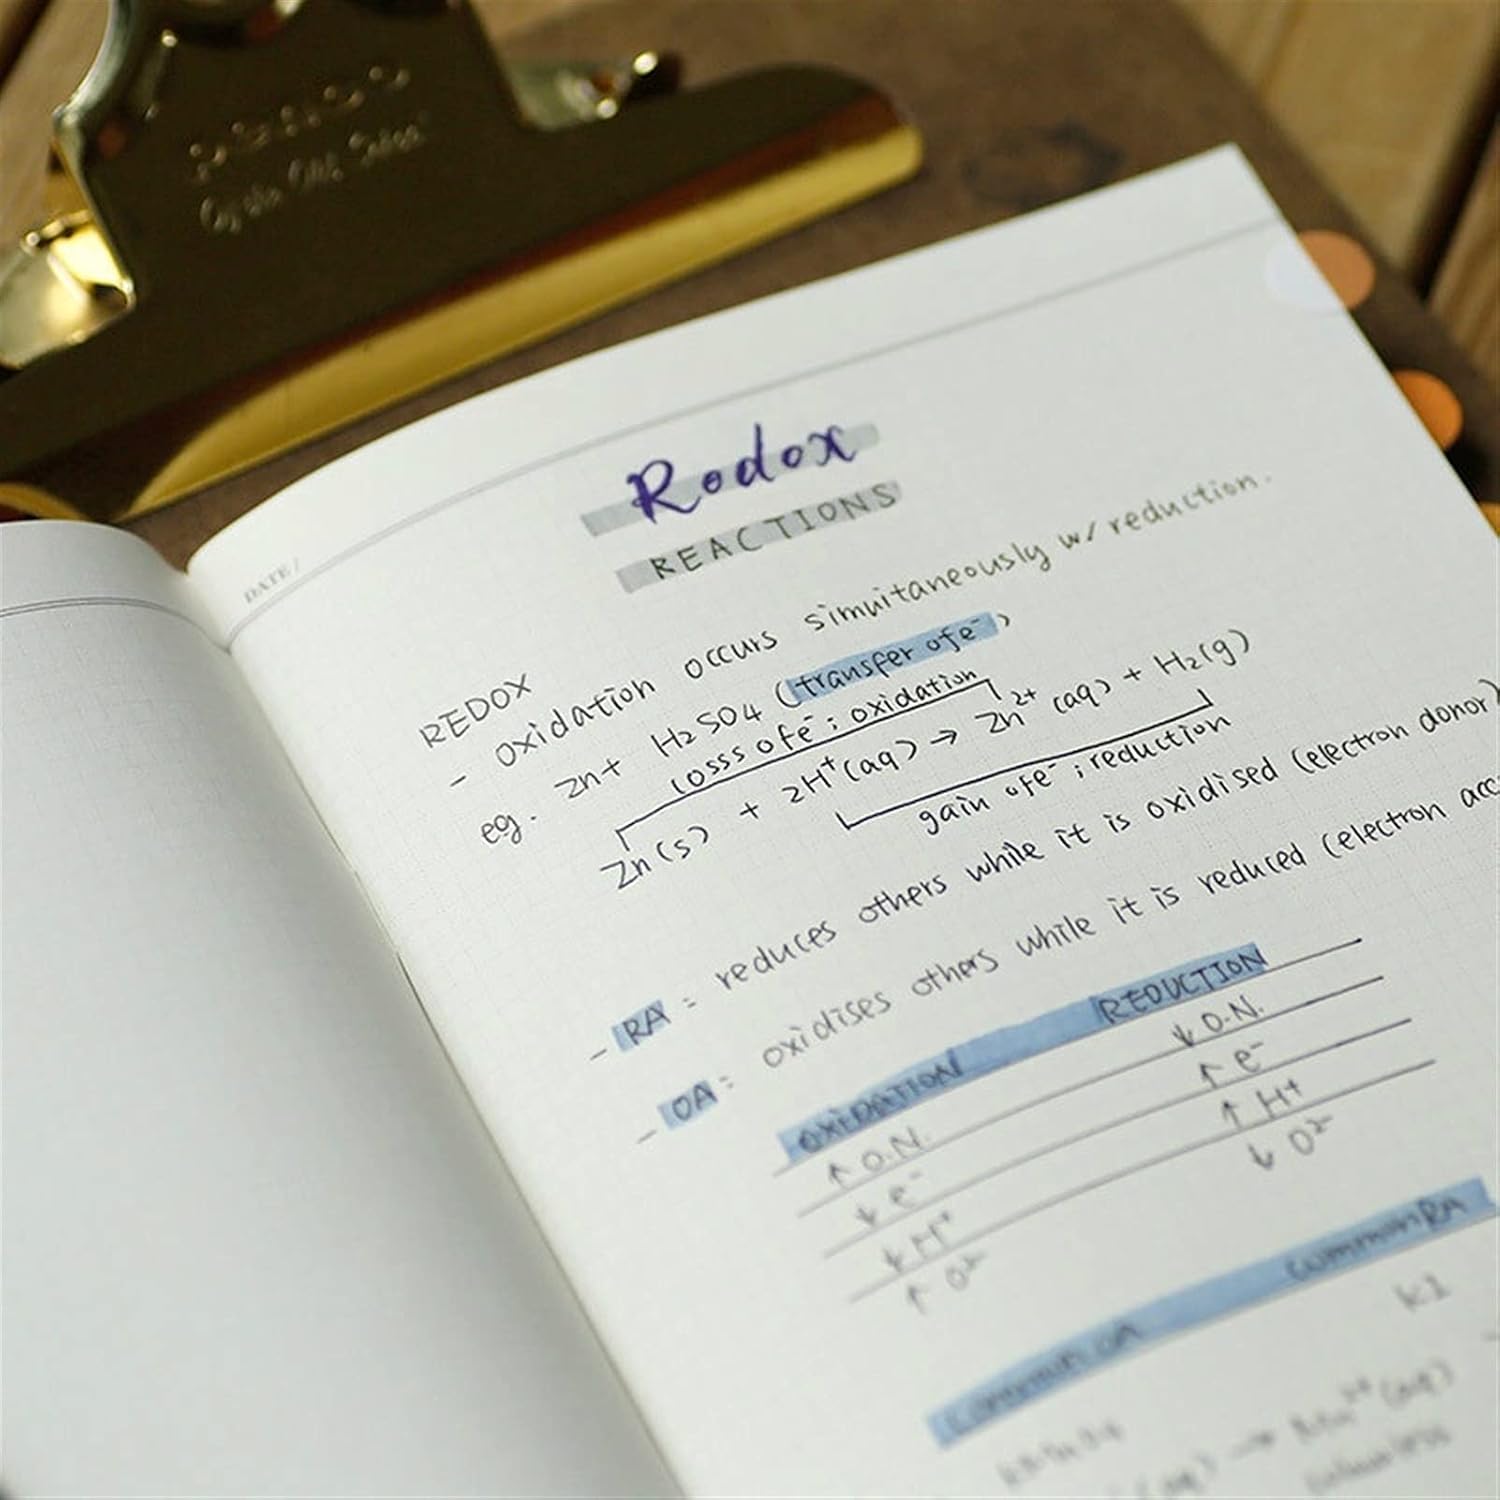 DATE /
Redox
REACTIONS
REDOX
- oxidation occurs simultaneously w/ reduction.
eg. Zn + H₂SO4 (transfer of e⁻)
losss of e⁻ ; oxidation
Zn(s) + 2H⁺(aq) → Zn²⁺(aq) + H₂(g)
gain of e⁻ ; reduction
- RA : reduces others while it is oxidised (electron donor)
- OA : oxidises others while it is reduced (electron acc
OXIDATION REDUCTION
↑ O.N. ↓ O.N.
↓ e⁻ ↑ e⁻
↓ H⁺ ↑ H⁺
↑ O²⁻ ↓ O²⁻
common OA common RA
KI
(aq) → Mn²⁺(aq)
colourless